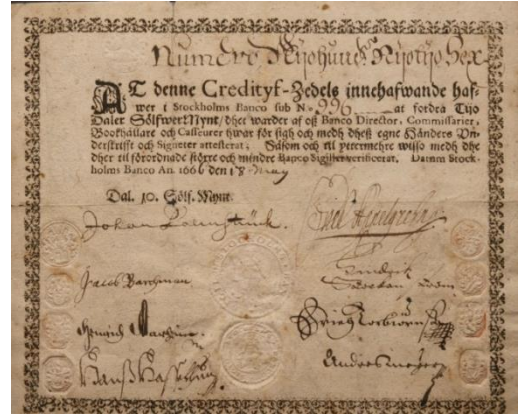 Numero Nijohund: Nijotijo Sex
AT denne Credityf-Zedels innehafwande haf-
wer i Stockholms Banco sub N.º 996 at fordra Tijo
Daler SölfwerMynt/ dhet warder af oß Banco Director, Commissarier,
Bookhållare och Casseurer hwar för sigh och medh dheß egne Händers Vn-
derskrifft och Signeter attesterat; Såsom och til yttermehre wisso medh dhe
dher til förordnade större och mindre Banco Sigiller verificerat. Datum Stock-
holms Banco An. 1666 den 18 May
Dal. 10. Sölf. Mynt.
Johan
Jacob Barchman
Hinrich
Hanß
Anders